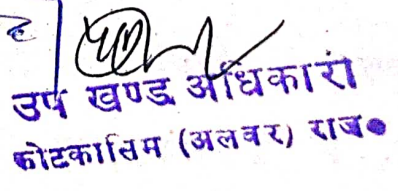 उप खण्ड अधिकारी
कोटकासिम (अलवर) राज॰